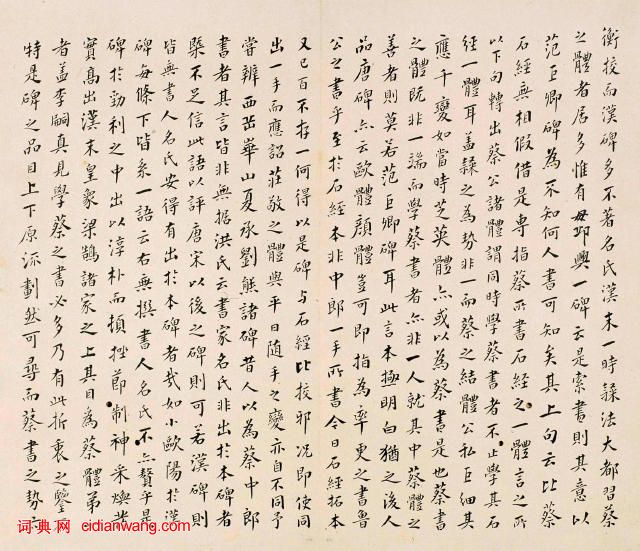 衡校而漢碑多不著名氏漢末一時隸法大都習蔡
之體者居多惟有毋邱興一碑云是索書則其意以
范巨卿碑為不知何人書可知矣其上句云比蔡
石經無相假借是專指蔡所書石經之一體言之所
以下句轉出蔡公諸體謂同時學蔡書者不止學其石
經一體耳盖隸之為勢非一而蔡之結體公私巨細其
應千變如當時芝英體亦或以為蔡書是也蔡書
之體既非一端而學蔡書者亦非一人就其中蔡體之
善者則莫若范巨卿碑耳此言本極明白猶之後人
品唐碑亦云歐體顔體豈可即指為率更之書魯
公之書乎至於石經本非中郎一手所書今日石經拓本
又已百不存一何得以是碑與石經比校邪况即使同
出一手而應詔莊敬之體與平日隨手之變亦自不同予
嘗辨西岳崋山夏承劉熊諸碑昔人以為蔡中郎
書者其言皆非無据洪氏云書家名氏非出於本碑者
槩不足信此語以評唐宋以後之碑則可若漢碑則
皆無書人名氏安得有出於本碑者哉如小歐陽於漢
碑每條下皆系一語云右無撰書人名氏不亦贅乎是
碑於勁利之中出以淳朴而頓挫節制神采煥
實髙出漢末皇象梁鵠諸家之上其目為蔡體第
者盖李嗣真見學蔡之書必多乃有此折衷之鑒
特是碑之品目上下原流劃然可尋而蔡書之勢
词典网 cidianwang.com